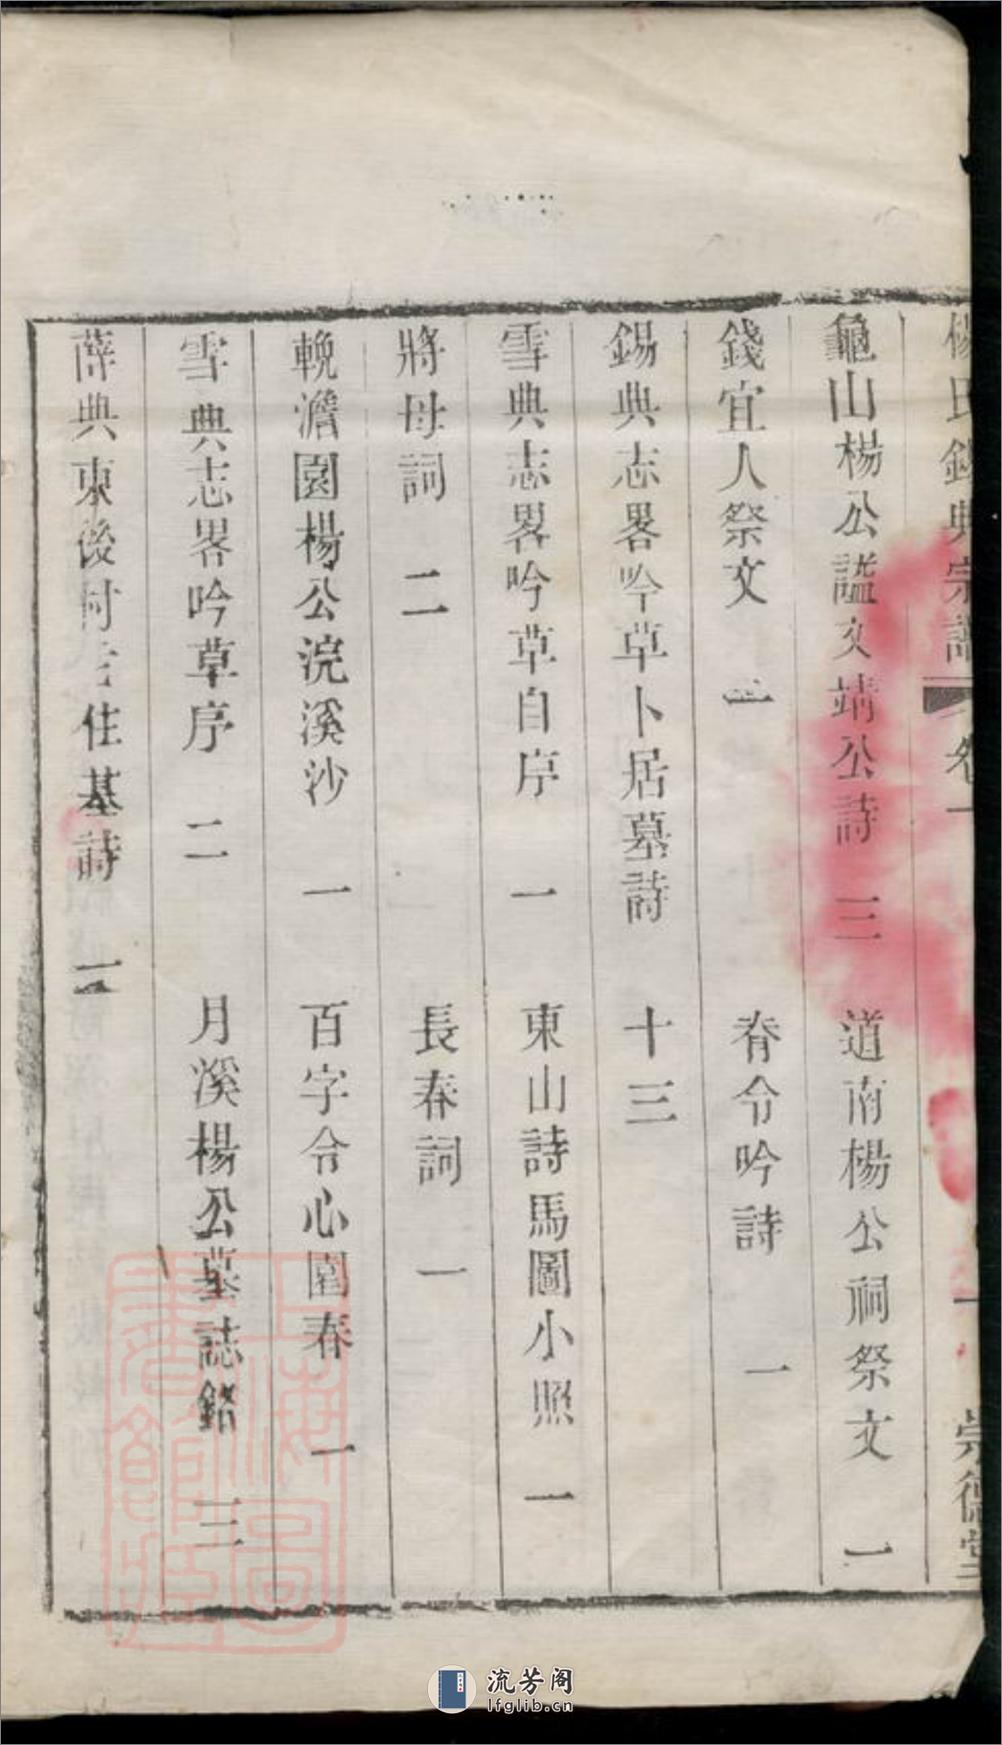 楊氏錫典宗譜 卷一 崇德堂
龜山楊公謚文靖公詩 三 道南楊公祠祭文 一
錢宜人祭文 一 脊令吟詩 一
錫典志畧吟草卜居墓詩 十三
雪典志畧吟草自序 一 東山詩馬圖小照 一
將母詞 二 長春詞 一
輓澹園楊公浣溪沙 一 百字令心園春 一
雪典志畧吟草序 二 月溪楊公墓誌銘 三
薛典東後村 住基詩 一
上海圖書館藏
流芳阁
lfglib.cn